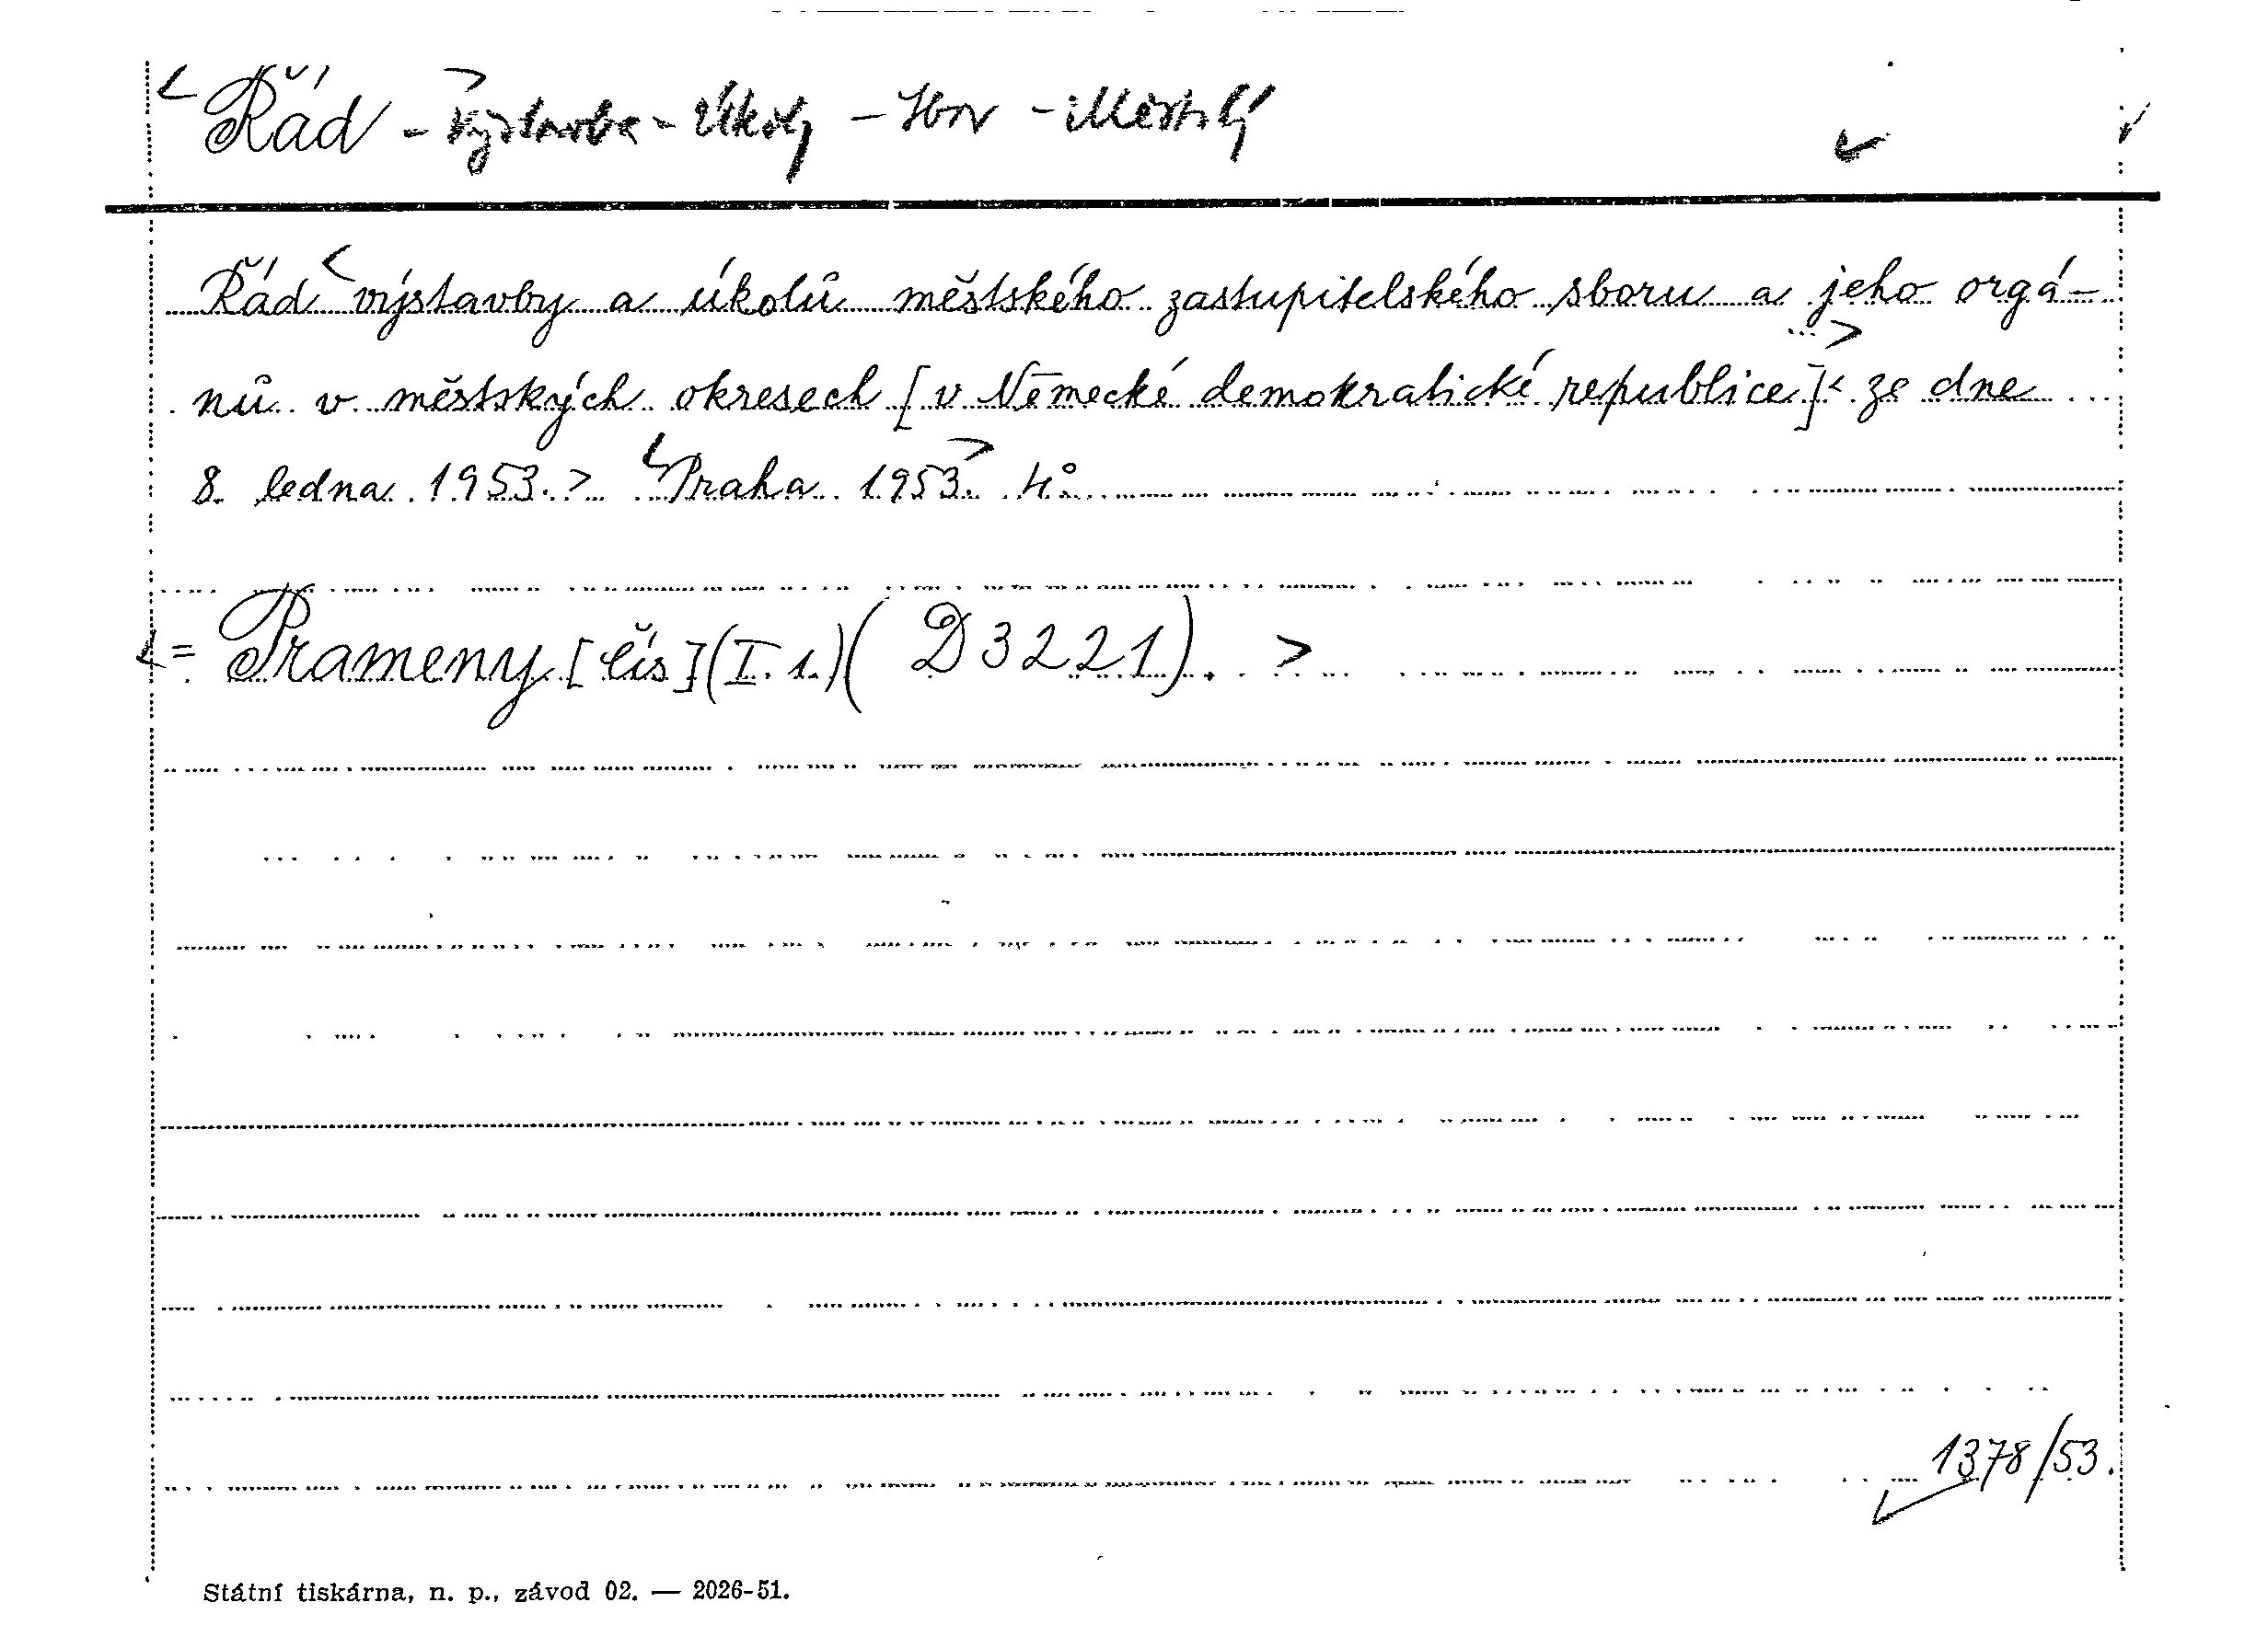 Řád - Výstavba - Úkoly - Sbor - Městský
Řád výstavby a úkolů městského zastupitelského sboru a jeho orgá-
nů v městských okresech [v Německé demokratické republice] ze dne
8. ledna 1953. Praha 1953. 4°
= Prameny [čís] (I. 1.) ( D 3221).
1378/53.
Státní tiskárna, n. p., závod 02. — 2026-51.